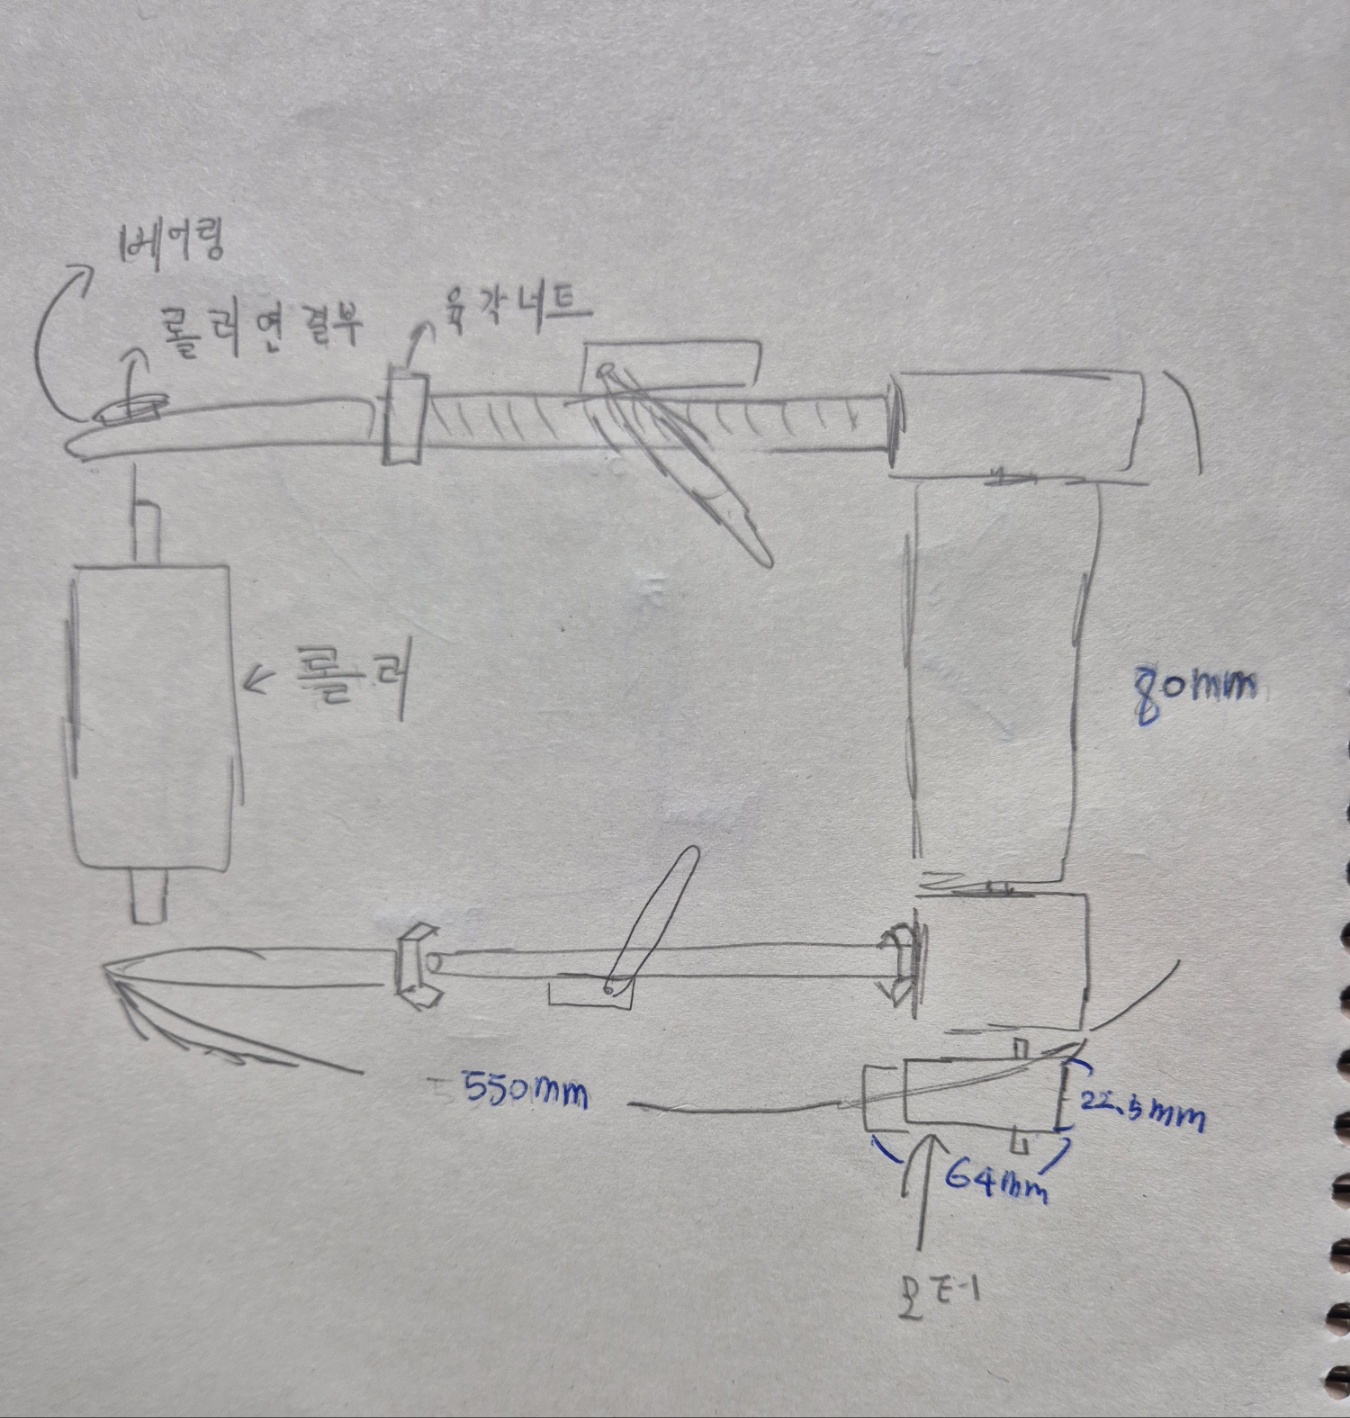 베어링
롤러연결부
육각너트
롤러
80mm
550mm
22.5mm
64mm
모터